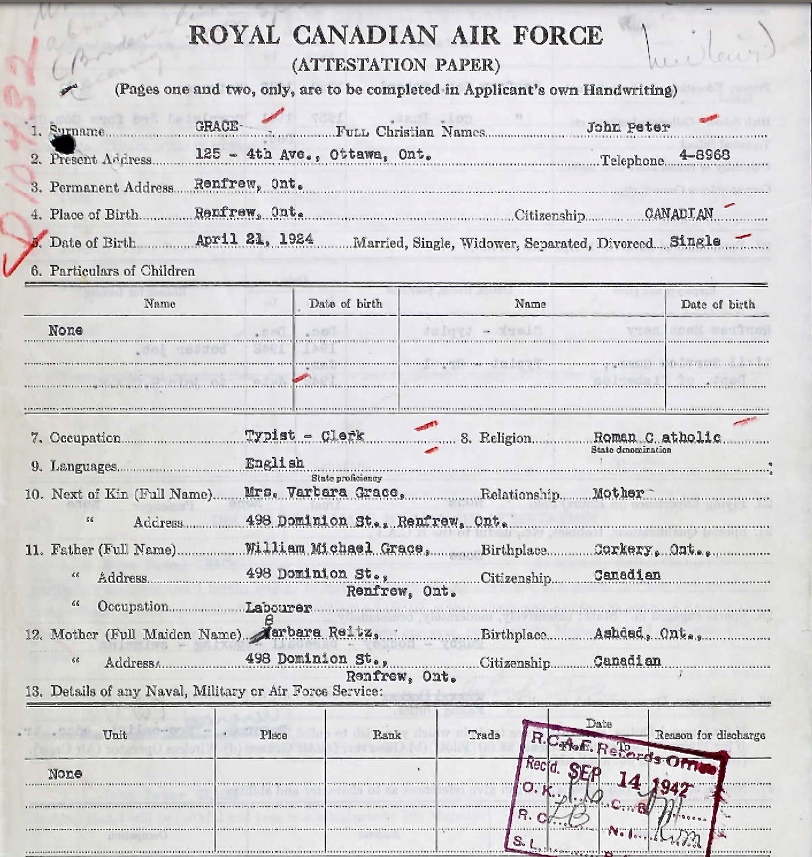 ROYAL CANADIAN AIR FORCE
(ATTESTATION PAPER)
(Pages one and two, only, are to be completed in Applicant's own Handwriting)
1. Surname GRACE Full Christian Names John Peter
2. Present Address 125 - 4th Ave., Ottawa, Ont. Telephone 4-8968
3. Permanent Address Renfrew, Ont.
4. Place of Birth Renfrew, Ont. Citizenship CANADIAN
5. Date of Birth April 21, 1924 Married, Single, Widower, Separated, Divorced Single
6. Particulars of Children
Name Date of birth Name Date of birth
None
7. Occupation Typist - Clerk 8. Religion Roman C atholic
State denomination
9. Languages English
State proficiency
10. Next of Kin (Full Name) Mrs. Varbara Grace, Relationship Mother
" Address 498 Dominion St., Renfrew, Ont.
11. Father (Full Name) William Michael Grace, Birthplace Corkery, Ont.,
" Address 498 Dominion St., Citizenship Canadian
Renfrew, Ont.
" Occupation Labourer
12. Mother (Full Maiden Name) Barbara Reitz, Birthplace Ashdad, Ont.,
" Address 498 Dominion St., Citizenship Canadian
Renfrew, Ont.
13. Details of any Naval, Military or Air Force Service:
Unit Place Rank Trade Date Reason for discharge
To
None
R.C.A.F. Records Office
Rec'd. SEP 14 1942
O.K. C.B.
R.C. N.I.
S.L.